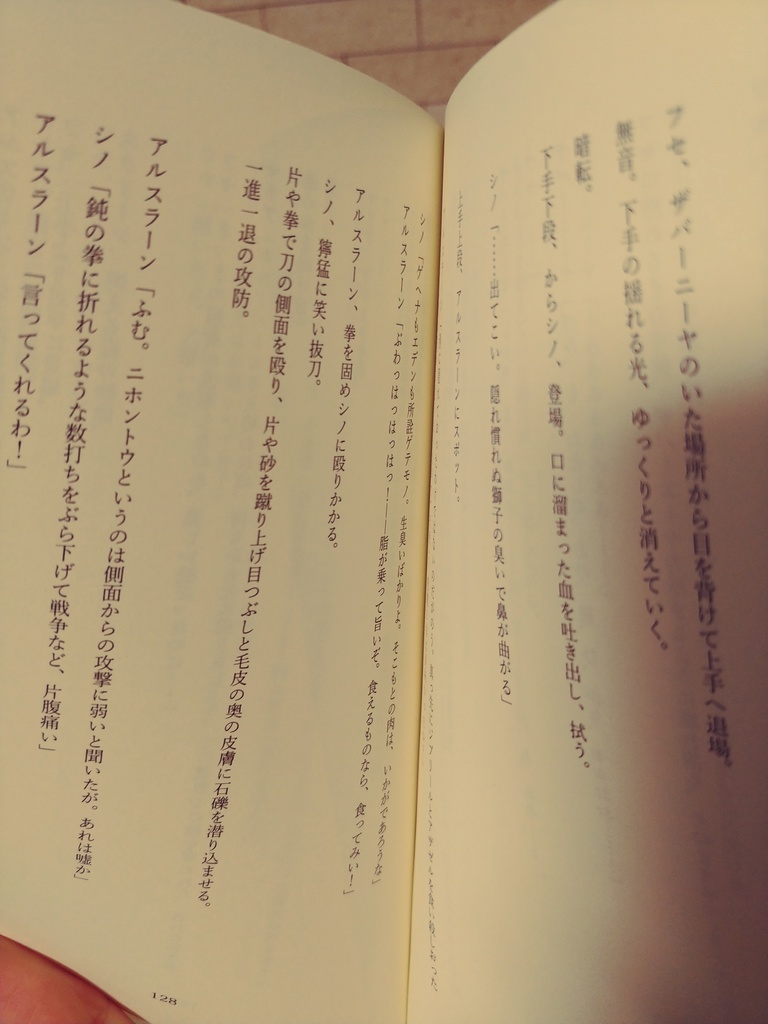 フセ、ザバーニーヤのいた場所から目を背けて上手へ退場。
無音。下手の揺れる光、ゆっくりと消えていく。
暗転。
下手下段、からシノ、登場。口に溜まった血を吐き出し、拭う。
シノ「……出てこい。隠れ慣れぬ獅子の臭いで鼻が曲がる」
上手上段、アルスラーンにスポット。
シノ「ゲヘナもエデンも所詮ゲテモノ。生臭いばかりよ。そこもとの肉は、いかがであろうな」
アルスラーン「ぶわっはっはっはっ!――脂が乗って旨いぞ。食えるものなら、食ってみい!」
アルスラーン、拳を固めシノに殴りかかる。
シノ、獰猛に笑い抜刀。
片や拳で刀の側面を殴り、片や砂を蹴り上げ目つぶしと毛皮の奥の皮膚に石礫を潜り込ませる。
一進一退の攻防。
アルスラーン「ふむ。ニホントウというのは側面からの攻撃に弱いと聞いたが。あれは嘘か」
シノ「鈍の拳に折れるような数打ちをぶら下げて戦争など、片腹痛い」
アルスラーン「言ってくれるわ!」
128